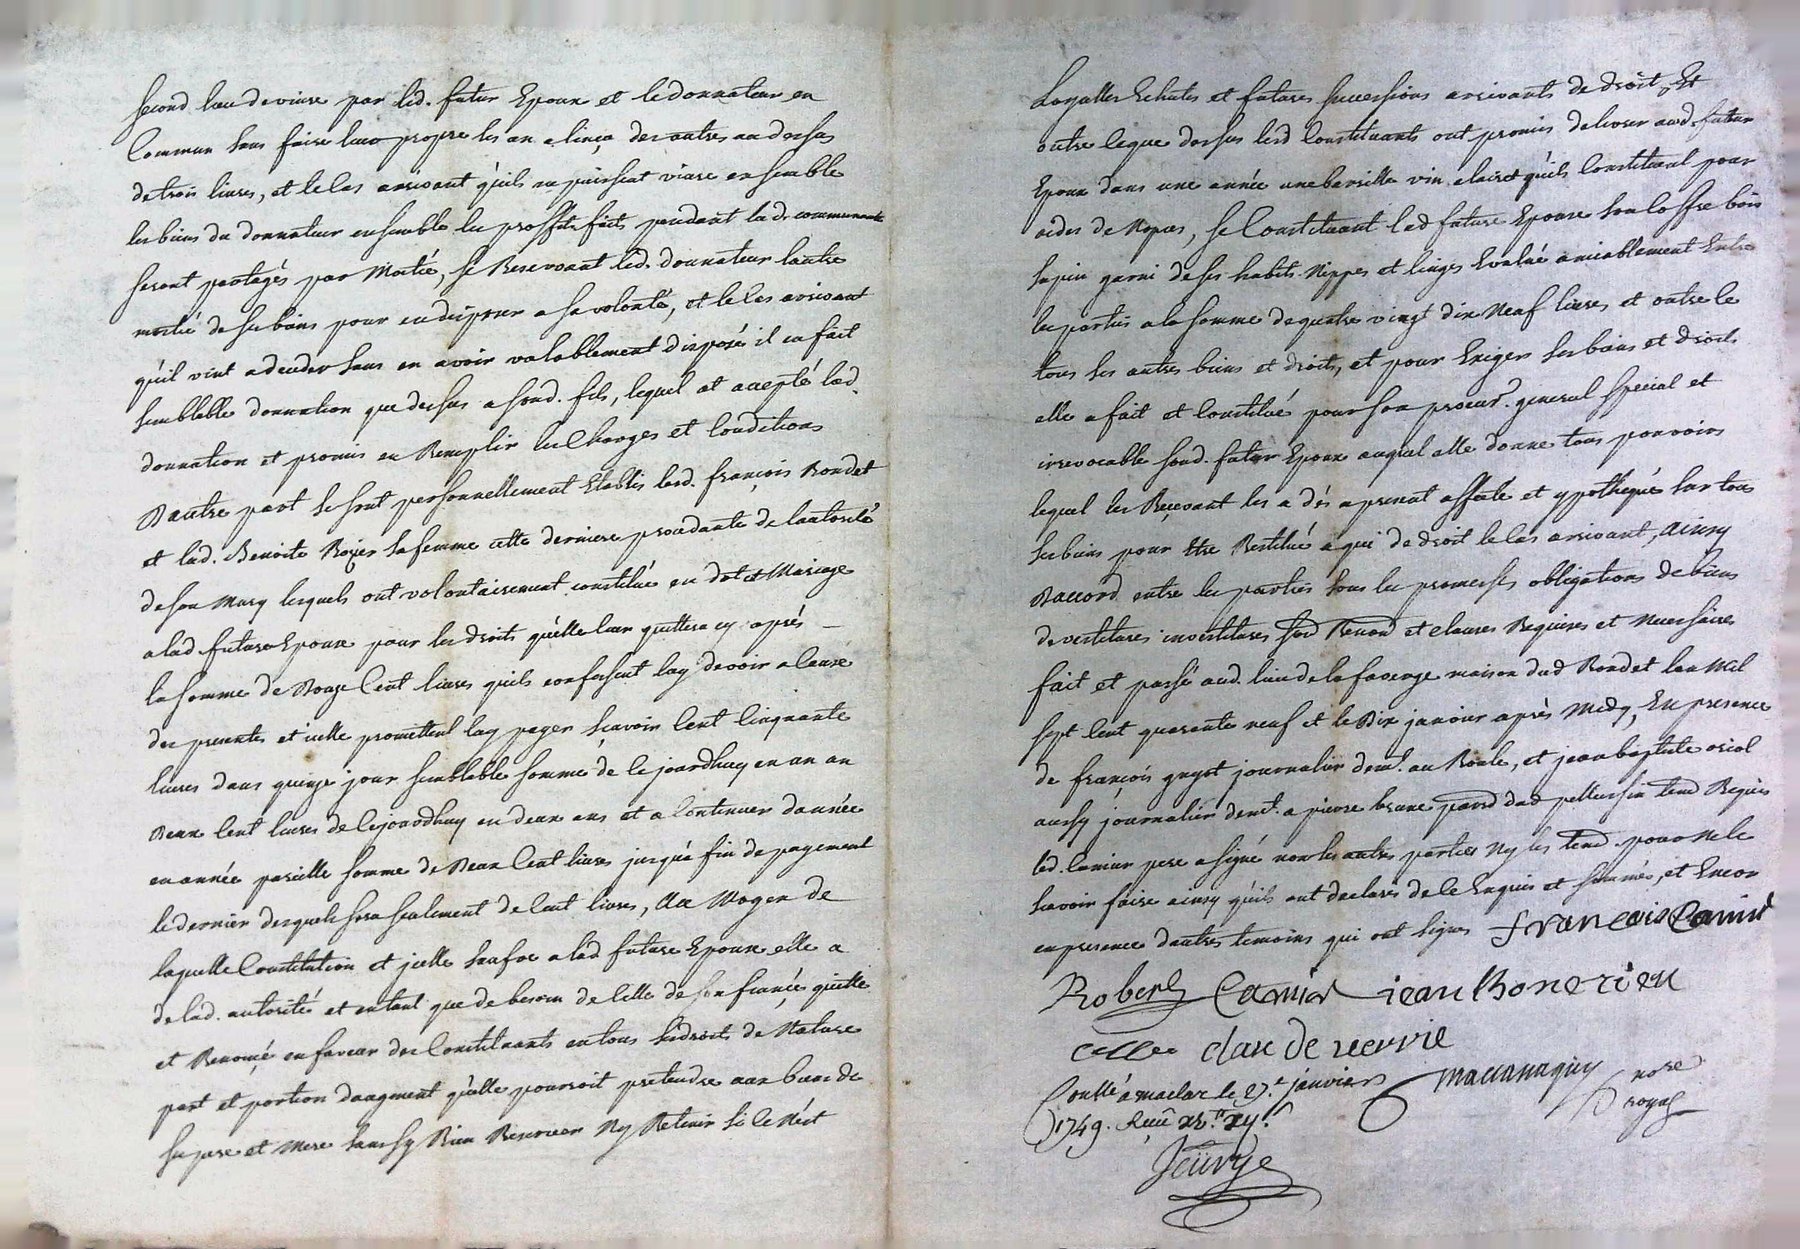 second lieu de vivre par led. futur Epoux et le donnateur en
Commun sans faire leur propre les un des autres au dessus
de trois livres, et le cas arrivant qu'ils ne puissent vivre ensemble
les biens du donnateur ensemble les proffits faits pendant lad. communauté
seront partagés par Moitié, se Reservant led. donnateur lautre
moitié de ses biens pour en disposer a sa volonté, et le cas arrivant
qu'il vint a deceder sans en avoir valablement disposé il en fait
semblable donnation que dessus a sond. fils, lequel at accepté lad.
donnation et promis en Remplir les Charges et Conditions
Dautre part se sont personnellement Etablis lesd. françois Rondet
et lad. Benoite Rozier sa femme cette derniere procedante de lautorité
de son Mary lesquels ont volontairement constitué en dot et Mariage
a lad future Epouse pour les droits qu'elle leur quittera cy aprés
la somme de Douze Cent livres qu'ils confessent luy devoir a cause
des presentes et icelle promettent luy payer scavoir Cent Cinquante
livres dans quinze jour semblable somme de ce jourdhuy en un an
Deux Cent livres de cejourdhuy en deux ans et a Continuer dannée
en année pareille somme de Deux Cent livres jusqu'a fin de payement
le dernier desquels sera seulement de Cent livres, Au Moyen de
laquelle Constitution et icelle saufve a lad future Epouse elle a
de lad. autorité et entant que de besoin de Celle de son fiancé quitté
et Renoncé en faveur des Constituants en tous ses droits de Nature
part et portion daugment qu'elle pourroit pretendre aux biens de
ses pere et Mere sans sy Rien Reserver Ny Retenir si ce N'est
Loyalles Echutes et futures successions arrivants de droit, Et
outre ce que dessus lesd Constituants ont promis delivrer aud. futur
Epoux dans une année une barille vin clairet qu'ils Constituent pour
aides de Nopces, se Constituant lad future Epouse son Coffre bois
sapin garni de ses habits Nippes et linges Evalué amiablement Entre
les parties a la somme de quatre vingt dix Neuf livres, et outre ce
tous ses autres biens et droits, et pour Exiger ses biens et droits
elle a fait et Constitué pour son procur. general special et
irrevocable sond. futur Epoux auquel elle donne tous pouvoirs
lequel les Recevant les a dés a present affecté et ypothequé sur tous
ses biens pour Etre Restitué a qui de droit le cas arrivant, Ainsy
Daccord entre les parties sous les promesses obligations de biens
devestitures investitures sur Renon et clauses Requises et Necessaires
fait et passé aud. lieu de la faverge maison dud Rondet lan Mil
sept Cent quarante neuf et le Dix janvier aprés Midy, En presence
de françois guyot journalier demt. au Roule, et jean baptiste oriol
aussy journalier demt. a pierre brune parr. dud pellussin temd Requis
led. Camier pere a signé non les autres parties Ny les temd. pour Ne le
scavoir faire ainsy qu'ils ont declaré de ce Enquis et sommés, et Encor
en presence dautres temoins qui ont signes francois Camier
Robert Camier jean Bonerien
claude vervie
Conllé a maclas le 27e. janvier
1749. Reçu
nore
royal